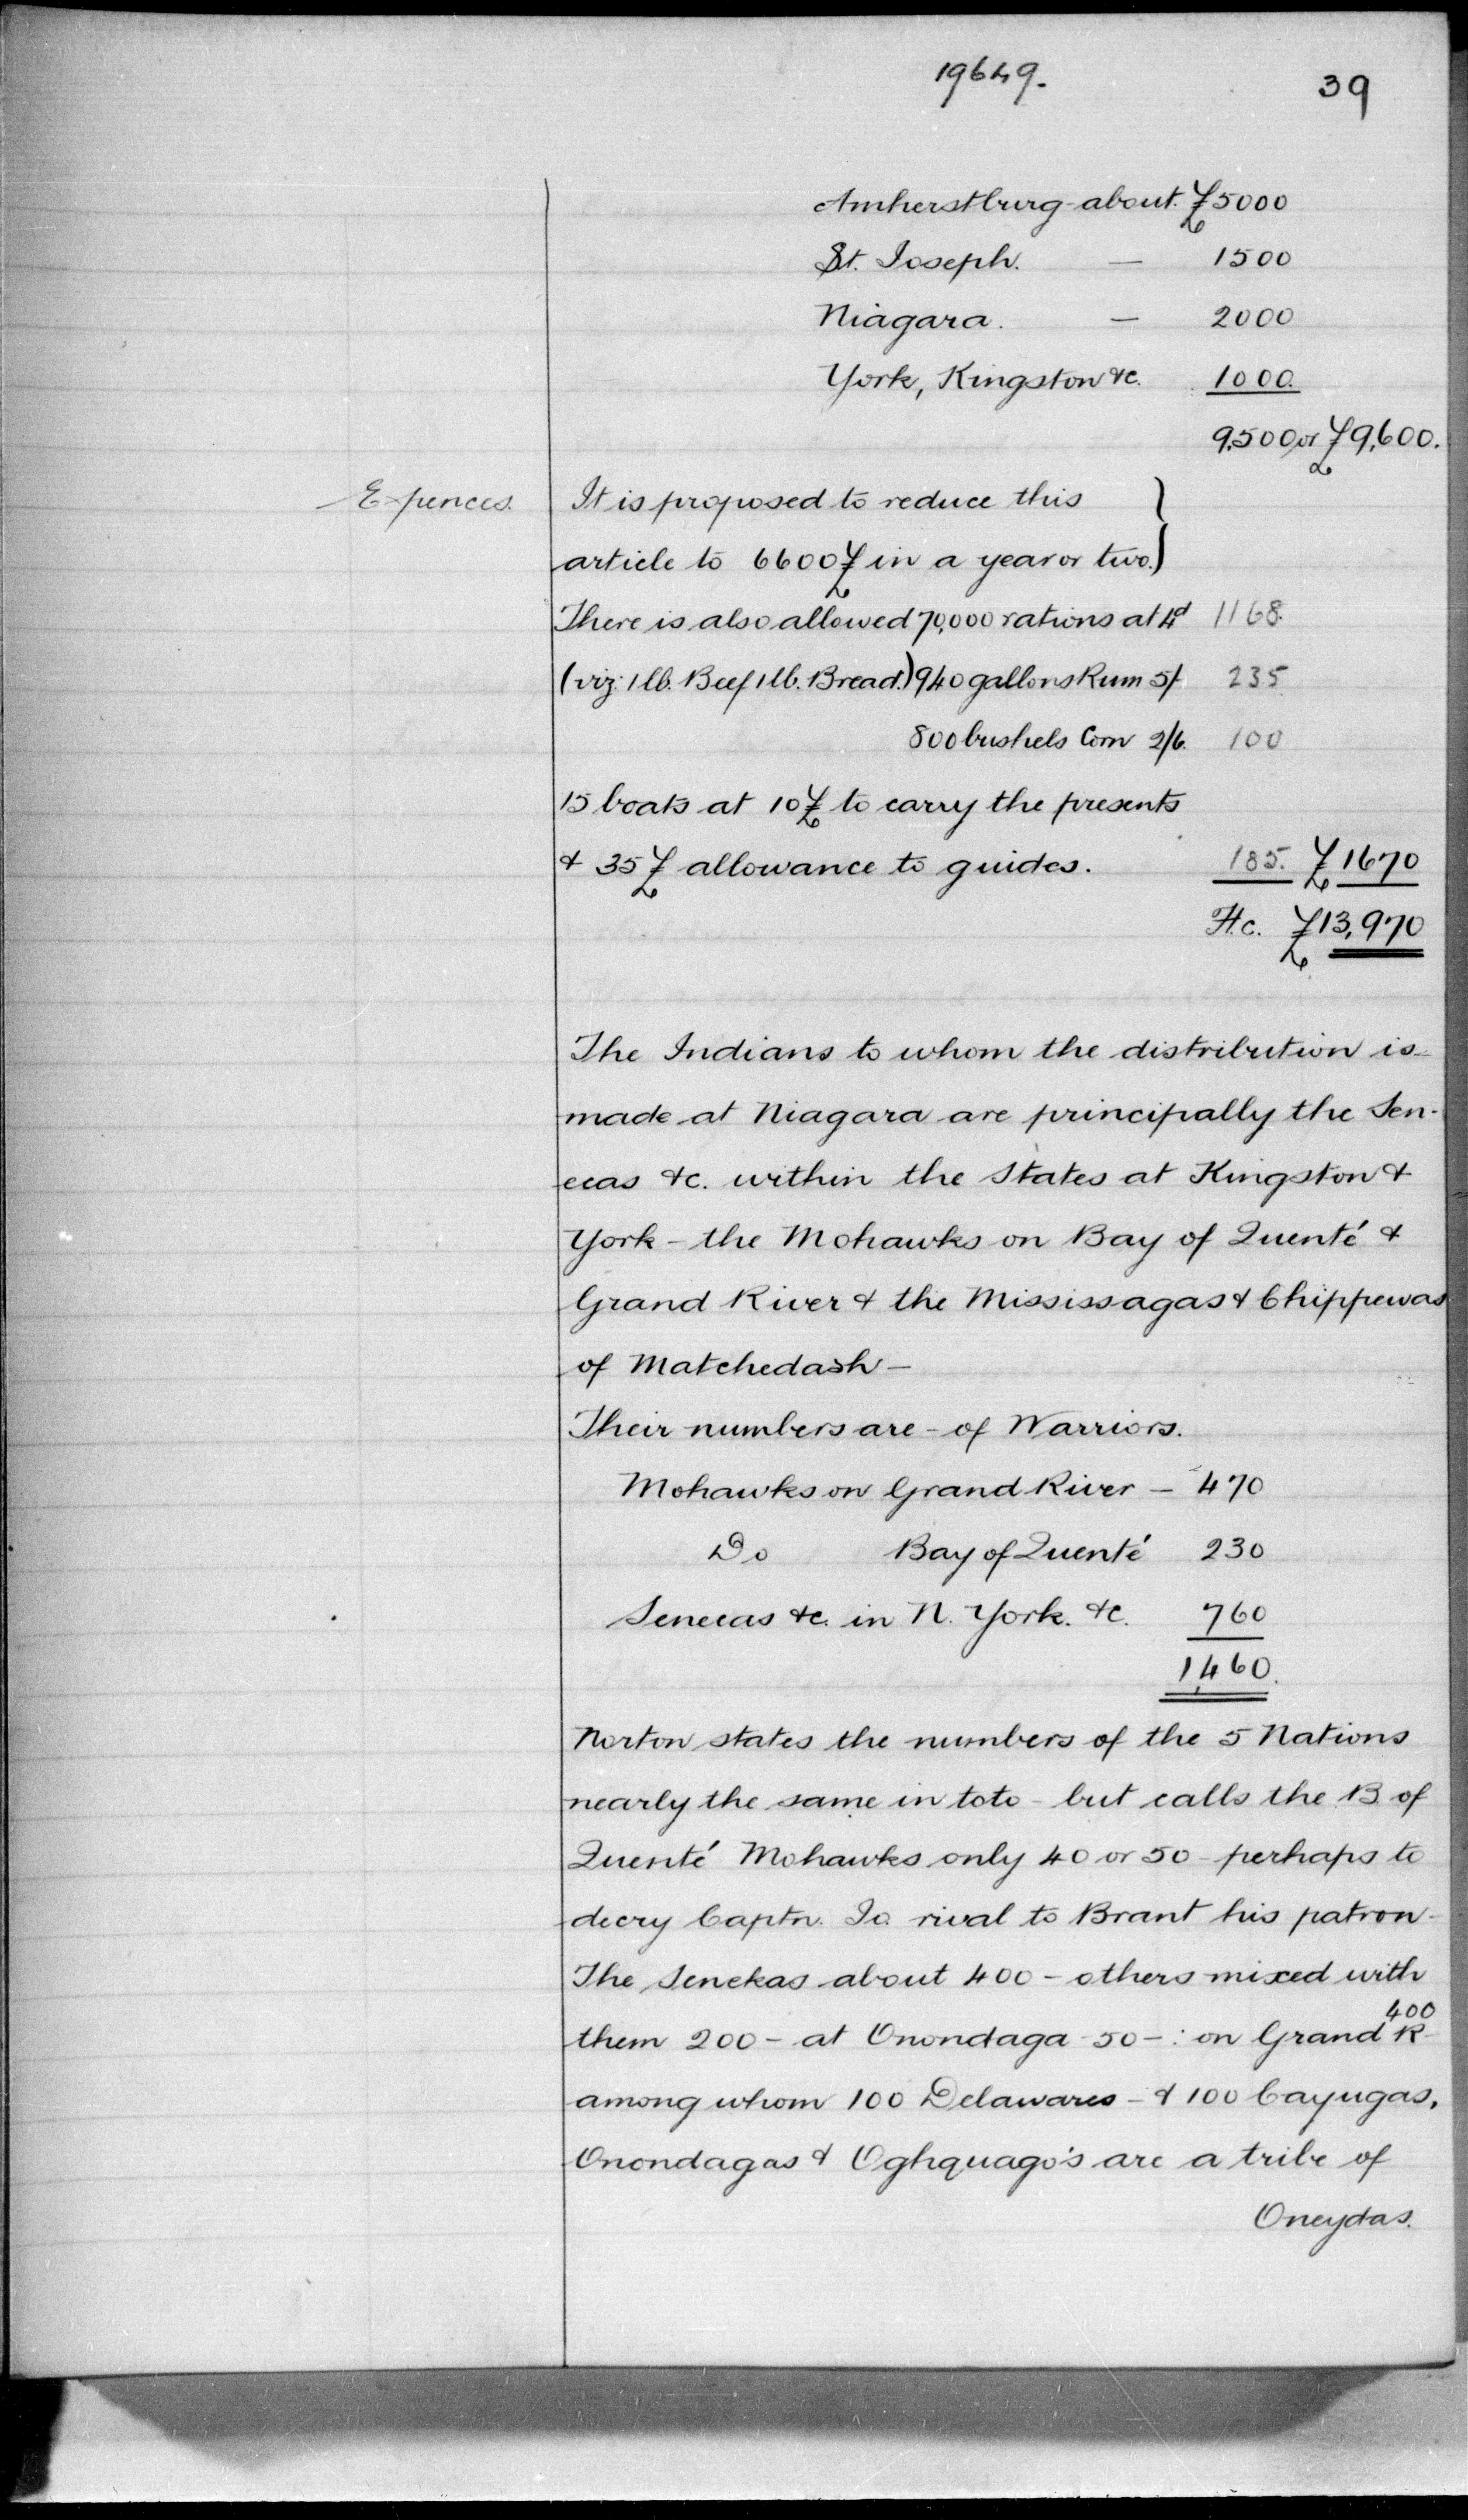 19649.
39
Amherstburg about. £5000
St. Joseph. — 1500
Niagara. — 2000
York, Kingston &c. 1000.
9,500 or £9,600.
Expences.
It is proposed to reduce this }
article to 6600£ in a year or two. }
There is also allowed 70,000 rations at 4d 1168.
(viz: 1 lb. Beef 1 lb. Bread.) 940 gallons Rum 5/ 235.
800 bushels Corn 2/6. 100
15 boats at 10£ to carry the presents
& 35£ allowance to guides. 185. £1670
H.c. £13,970
The Indians to whom the distribution is
made at Niagara are principally the Sen-
ecas &c. within the States at Kingston &
York - the Mohawks on Bay of Quenté &
Grand River & the Mississagas & Chippewas
of Matchedash —
Their numbers are - of Warriors.
Mohawks on Grand River — 470
Do Bay of Quenté 230
Senecas &c. in N. York. &c. 760
1,460.
Norton states the numbers of the 5 Nations
nearly the same in toto - but calls the B. of
Quenté Mohawks only 40 or 50 - perhaps to
decry Captn. Jo. rival to Brant his patron -
The Senekas about 400 - others mixed with
them 200 - at Onondaga - 50 -: on Grand R 400
among whom 100 Delawares - & 100 Cayugas,
Onondagas & Oghquago's are a tribe of
Oneydas.